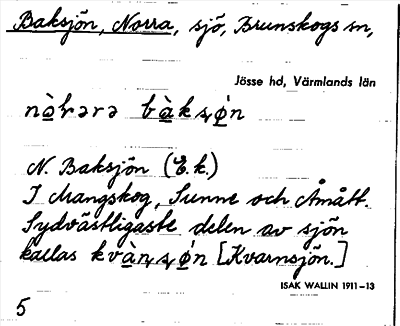 Baksjön, Norra, sjö, Brunskogs sn,
Jösse hd, Värmlands län
N. Baksjön (E.k.)
I Mangskog, Sunne och Åmått.
Sydvästligaste delen av sjön
kallas [Kvarnsjön.]
ISAK WALLIN 1911–13
5